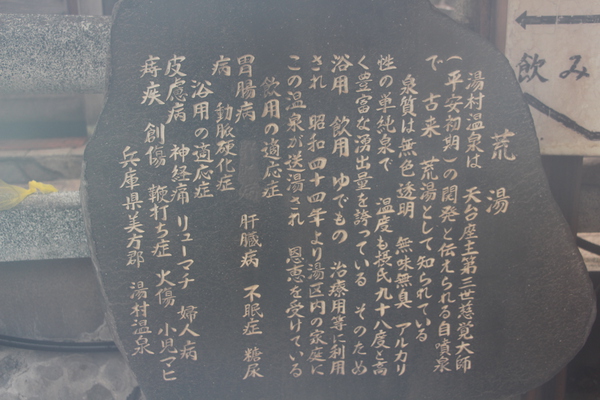 荒湯
湯村温泉は 天台座主第三世慈覚大師
(平安初期)の開発と伝えられる自噴泉
で 古来 荒湯として知られている
泉質は無色透明 無味無臭 アルカリ
性の単純泉で 温度も摂氏九十八度と高
く豊富な湧出量を誇っている そのため
浴用 飲用 ゆでもの 治療用等に利用
され 昭和四十四年より湯区内の家庭に
この温泉が送湯され 恩恵を受けている
飲用の適応症
胃腸病 肝臓病 不眠症 糖尿
病 動脈硬化症
浴用の適応症
皮膚病 神経痛 リューマチ 婦人病
痔疾 創傷 鞭打ち症 火傷 小児マヒ
兵庫県美方郡 湯村温泉
飲み